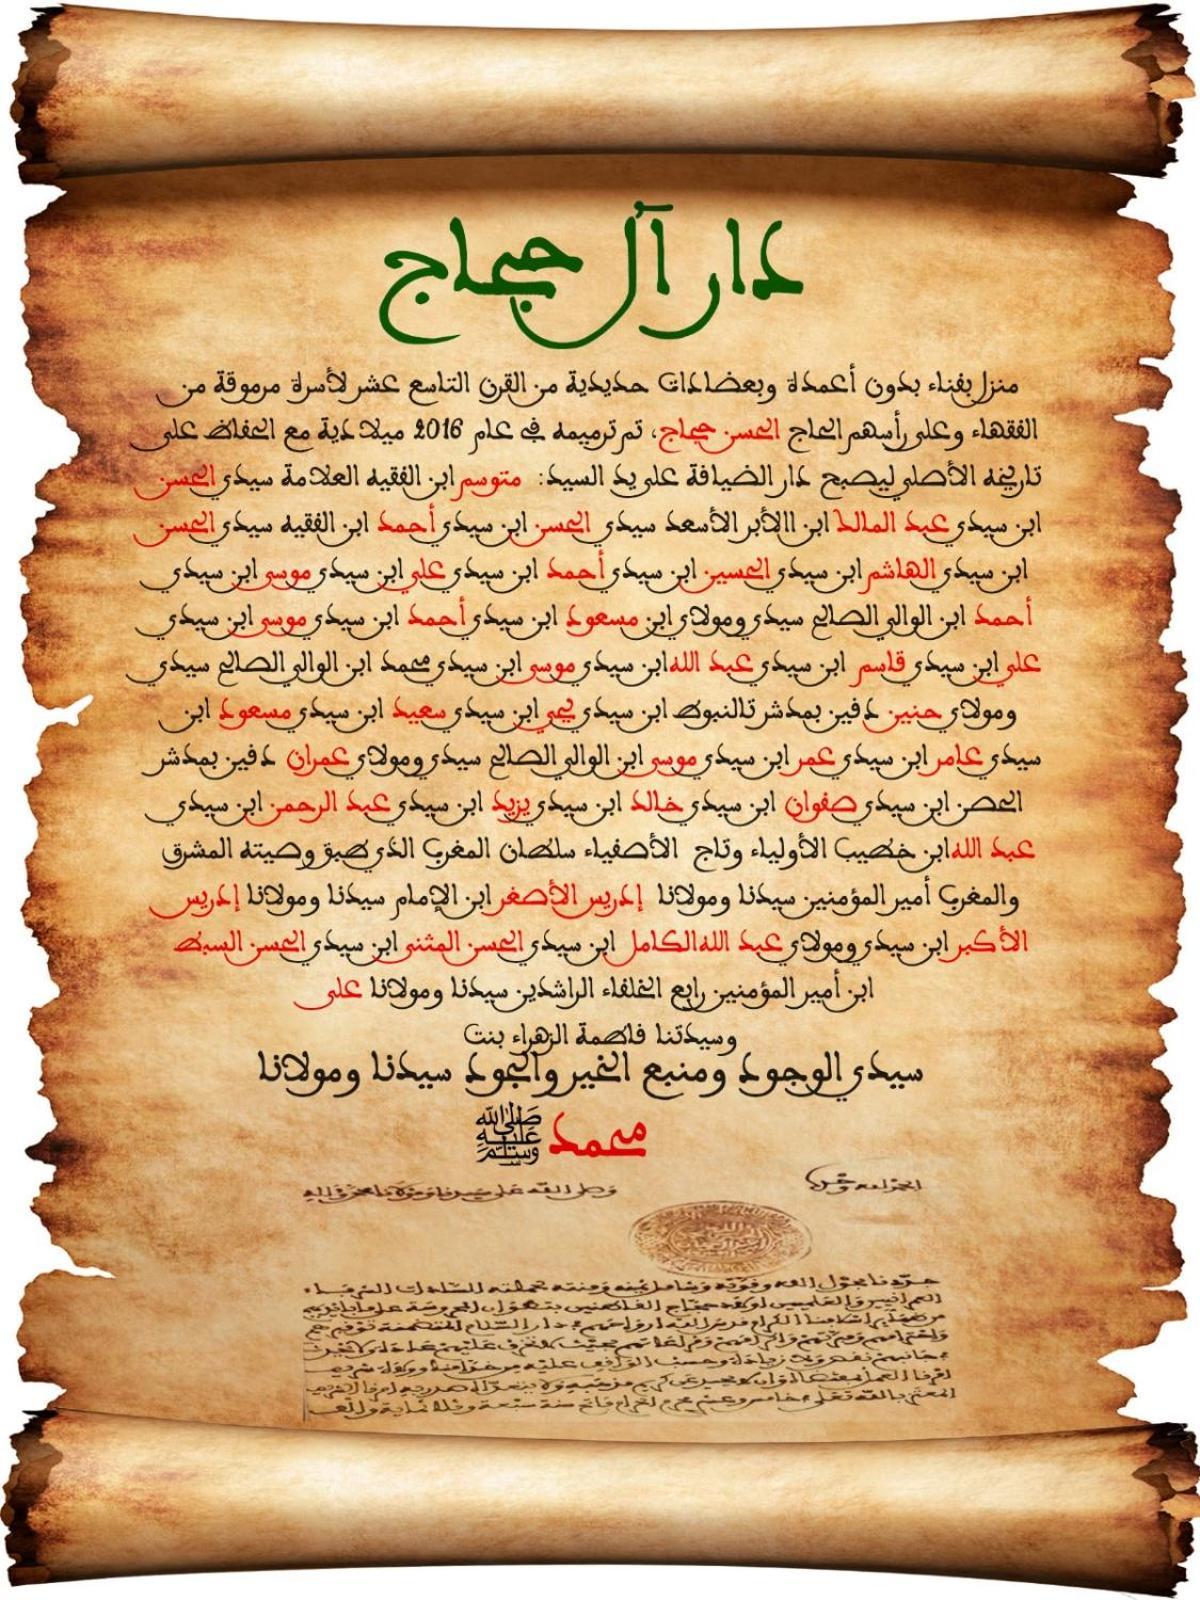 دار آل حجاج
منزل بفناء بدون أعمدة وبعضادات حديدية من القرن التاسع عشر لأسرة مرموقة من
الفقهاء وعلى رأسهم الحاج الحسن حجاج، تم ترميمه في عام 2016 ميلادية مع الحفاظ على
تاريخه الأصلي ليصبح دار الضيافة على يد السيد: متوسم ابن الفقيه العلامة سيدي الحسن
ابن سيدي عبد المالك ابن االأبر الأسعد سيدي الحسن ابن سيدي أحمد ابن الفقيه سيدي الحسن
ابن سيدي الهاشم ابن سيدي الحسين ابن سيدي أحمد ابن سيدي علي ابن سيدي موسى ابن سيدي
أحمد ابن الوالي الصالح سيدي ومولاي ابن مسعود ابن سيدي أحمد ابن سيدي موسى ابن سيدي
علي ابن سيدي قاسم ابن سيدي عبد الله ابن سيدي موسى ابن سيدي محمد ابن الوالي الصالح سيدي
ومولاي حنين دفين بمدشر تالنبوط ابن سيدي يحي ابن سيدي سعيد ابن سيدي مسعود ابن
سيدي عامر ابن سيدي عمر ابن سيدي موسى ابن الوالي الصالح سيدي ومولاي عمران دفين بمدشر
الحصن ابن سيدي صفوان ابن سيدي خالد ابن سيدي يزيد ابن سيدي عبد الرحمن ابن سيدي
عبد الله ابن خطيب الأولياء وتاج الأصفياء سلطان المغرب الذي طبق وصيته المشرق
والمغرب أمير المؤمنين سيدنا ومولانا إدريس الأصغر ابن الإمام سيدنا ومولانا إدريس
الأكبر ابن سيدي ومولاي عبد الله الكامل ابن سيدي الحسن المثنى ابن سيدي الحسن السبط
ابن أمير المؤمنين رابع الخلفاء الراشدين سيدنا ومولانا على
وسيدتنا فاطمة الزهراء بنت
سيدي الوجود ومنبع الخير والجود سيدنا ومولانا
محمد ﷺ
الحمد لله وحده
وصلى الله على سيدنا ومولانا محمد وآله